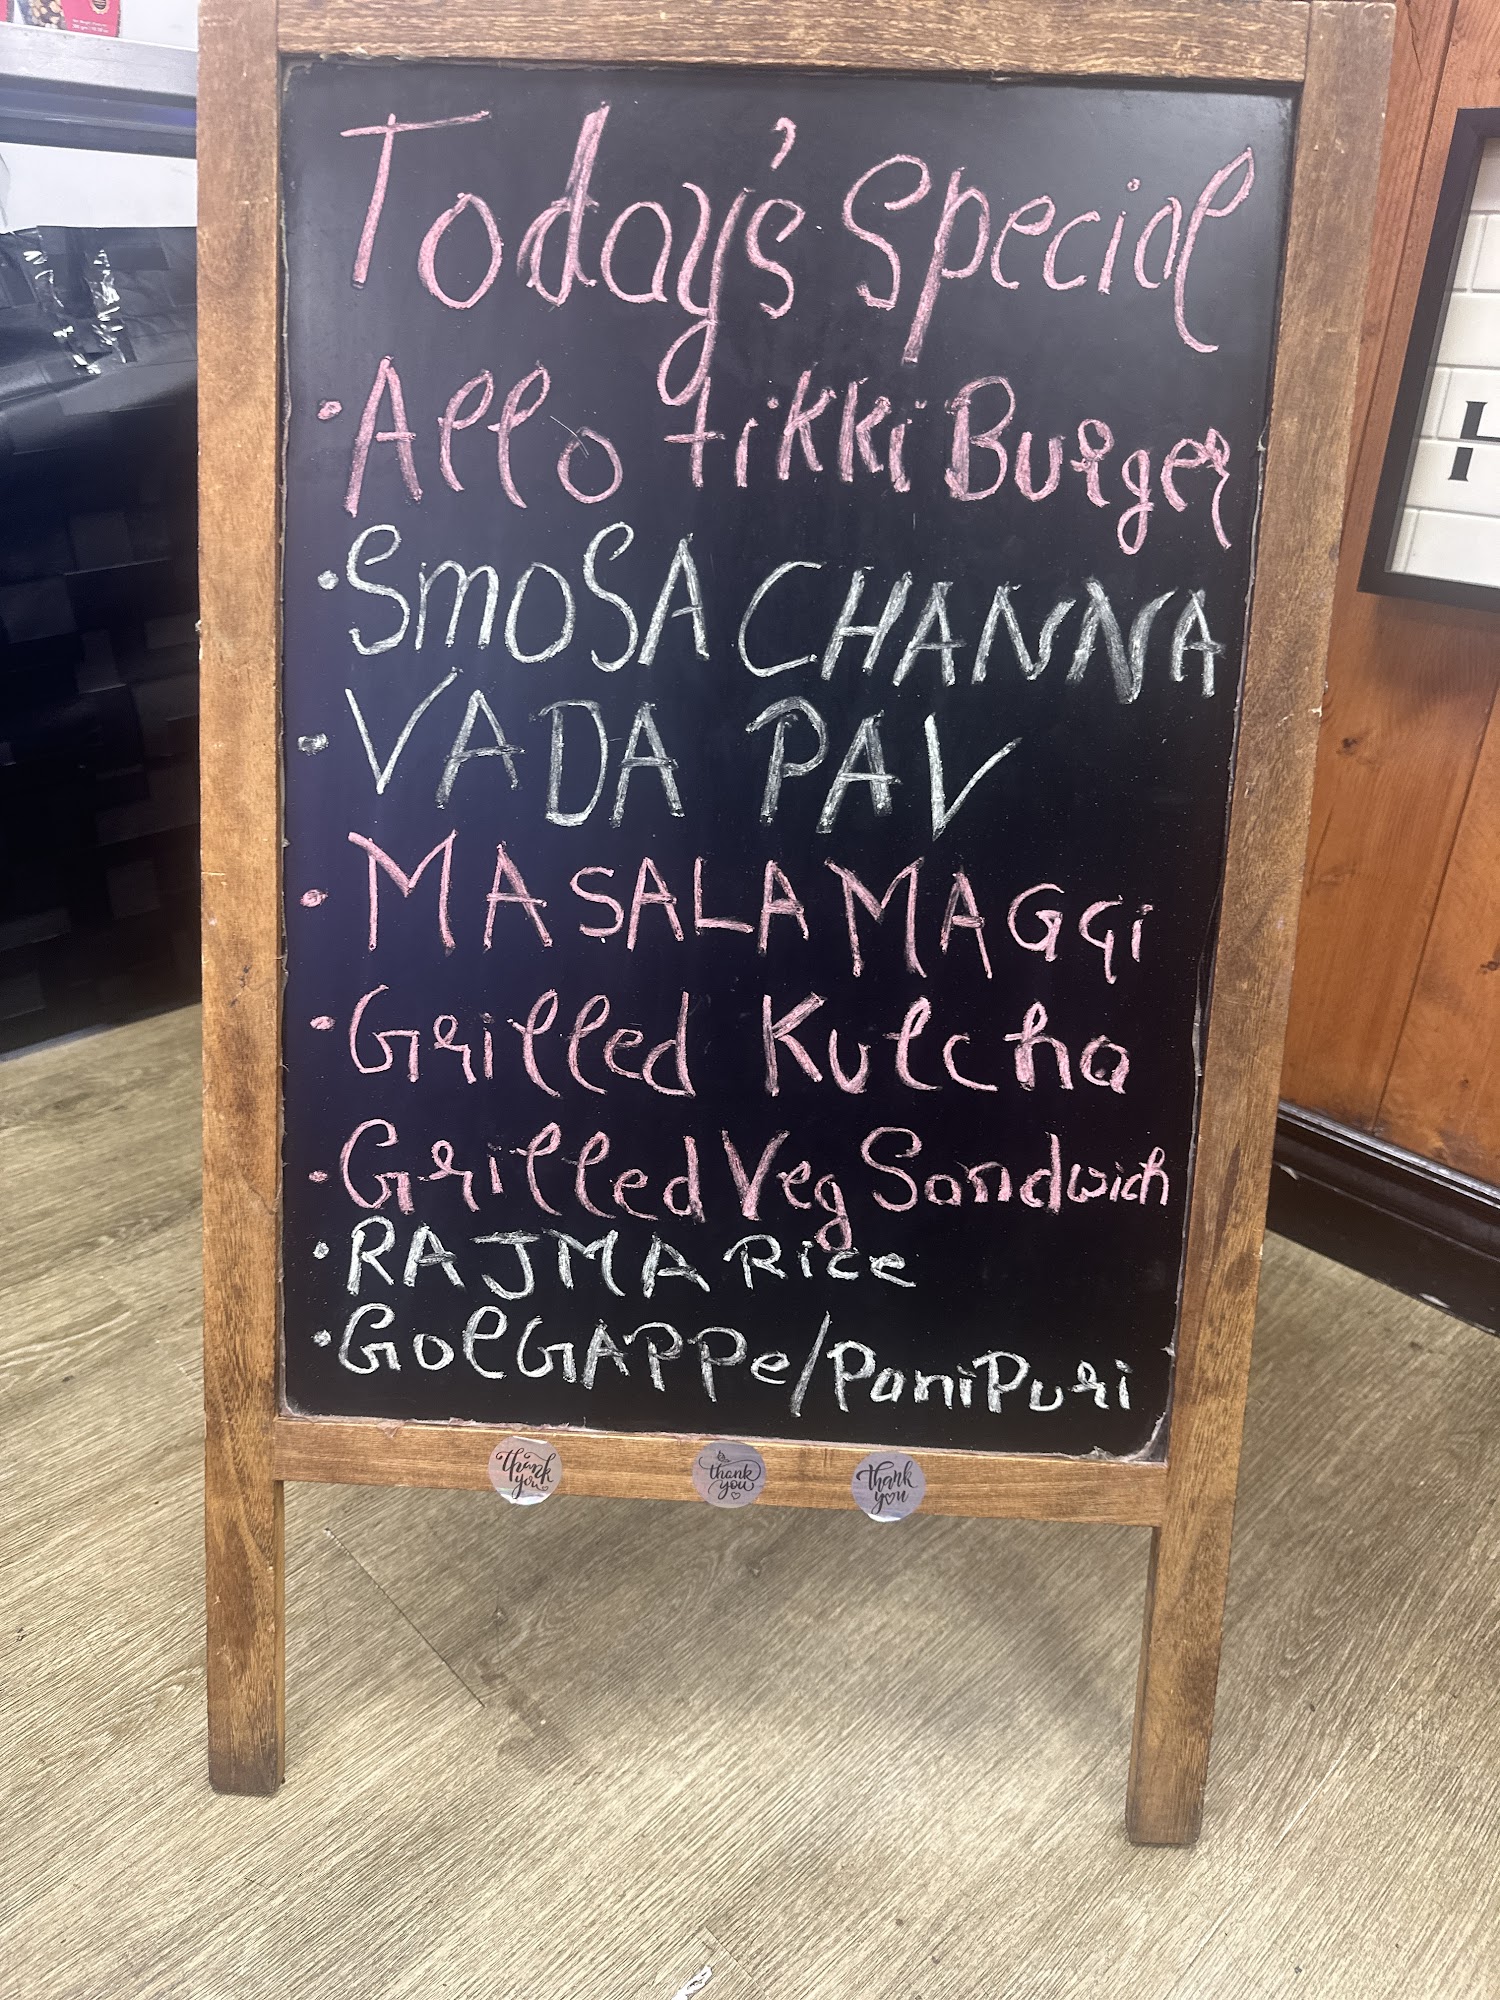 Today's Special
• Allo tikki Burger
• SmOSA CHANNA
• VADA PAV
• MASALA MAGGi
• Grilled Kulcha
• Grilled Veg Sandwich
• RAJMA Rice
• GolGAPPe/PaniPuri
thank you
thank you
thank you